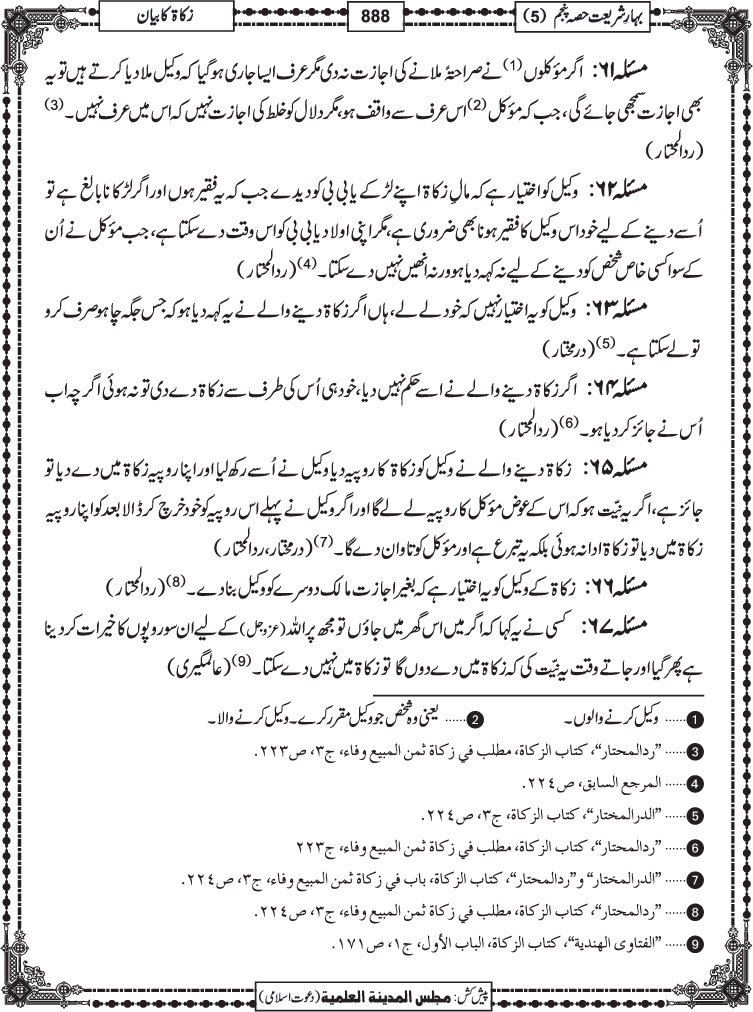 بہارِ شریعت حصہ پنجم (5)
888
زکاۃ کا بیان
مسئلہ ۶۱: اگر مؤکلوں (1) نے صراحۃً ملانے کی اجازت نہ دی مگر عرف ایسا جاری ہوگیا کہ وکیل ملا دیا کرتے ہیں تو یہ
بھی اجازت سمجھی جائے گی، جب کہ مؤکل (2) اس عرف سے واقف ہو، مگر دلال کو خلط کی اجازت نہیں کہ اس میں عرف نہیں۔ (3)
(ردالمحتار)
مسئلہ ۶۲: وکیل کو اختیار ہے کہ مالِ زکاۃ اپنے لڑکے یا بی بی کو دیدے جب کہ یہ فقیر ہوں اور اگر لڑکا نابالغ ہے تو
اُسے دینے کے لیے خود اس وکیل کا فقیر ہونا بھی ضروری ہے، مگر اپنی اولاد یا بی بی کو اس وقت دے سکتا ہے، جب مؤکل نے اُن
کے سوا کسی خاص شخص کو دینے کے لیے نہ کہہ دیا ہو ورنہ انھیں نہیں دے سکتا۔ (4) (ردالمحتار)
مسئلہ ۶۳: وکیل کو یہ اختیار نہیں کہ خود لے لے، ہاں اگر زکاۃ دینے والے نے یہ کہہ دیا ہو کہ جس جگہ چاہو صرف کرو
تو لے سکتا ہے۔ (5) (درمختار)
مسئلہ ۶۴: اگر زکاۃ دینے والے نے اسے حکم نہیں دیا، خود ہی اُس کی طرف سے زکاۃ دے دی تو نہ ہوئی اگرچہ اب
اُس نے جائز کر دیا ہو۔ (6) (ردالمحتار)
مسئلہ ۶۵: زکاۃ دینے والے نے وکیل کو زکاۃ کا روپیہ دیا وکیل نے اُسے رکھ لیا اور اپنا روپیہ زکاۃ میں دے دیا تو
جائز ہے، اگر یہ نیّت ہو کہ اس کے عوض مؤکل کا روپیہ لے لے گا اور اگر وکیل نے پہلے اس روپیہ کو خود خرچ کر ڈالا بعد کو اپنا روپیہ
زکاۃ میں دیا تو زکاۃ ادا نہ ہوئی بلکہ یہ تبرع ہے اور مؤکل کو تاوان دے گا۔ (7) (درمختار، ردالمحتار)
مسئلہ ۶۶: زکاۃ کے وکیل کو یہ اختیار ہے کہ بغیر اجازت مالک دوسرے کو وکیل بنا دے۔ (8) (ردالمحتار)
مسئلہ ۶۷: کسی نے یہ کہا کہ اگر میں اس گھر میں جاؤں تو مجھ پر اللہ (عزوجل) کے لیے ان سو روپوں کا خیرات کر دینا
ہے پھر گیا اور جاتے وقت یہ نیّت کی کہ زکاۃ میں دے دوں گا تو زکاۃ میں نہیں دے سکتا۔ (9) (عالمگیری)
1 ...... وکیل کرنے والوں۔ 2 ...... یعنی وہ شخص جو وکیل مقرر کرے۔ وکیل کرنے والا۔
3 ...... ”ردالمحتار“، کتاب الزکاۃ، مطلب في زکاۃ ثمن المبیع وفاء، ج۳، ص۲۲۳.
4 ...... المرجع السابق، ص۲۲٤.
5 ...... ”الدرالمختار“، کتاب الزکاۃ، ج۳، ص۲۲٤.
6 ...... ”ردالمحتار“، کتاب الزکاۃ، مطلب في زکاۃ ثمن المبیع وفاء، ج۲۲۳
7 ...... ”الدرالمختار“ و”ردالمحتار“، کتاب الزکاۃ، باب في زکاۃ ثمن المبیع وفاء، ج۳، ص۲۲٤.
8 ...... ”ردالمحتار“، کتاب الزکاۃ، مطلب في زکاۃ ثمن المبیع وفاء، ج۳، ص۲۲٤.
9 ...... ”الفتاوی الهندیة“، کتاب الزکاۃ، الباب الأول، ج۱، ص۱۷۱.
پیش کش: مجلس المدینة العلمیة (دعوت اسلامی)